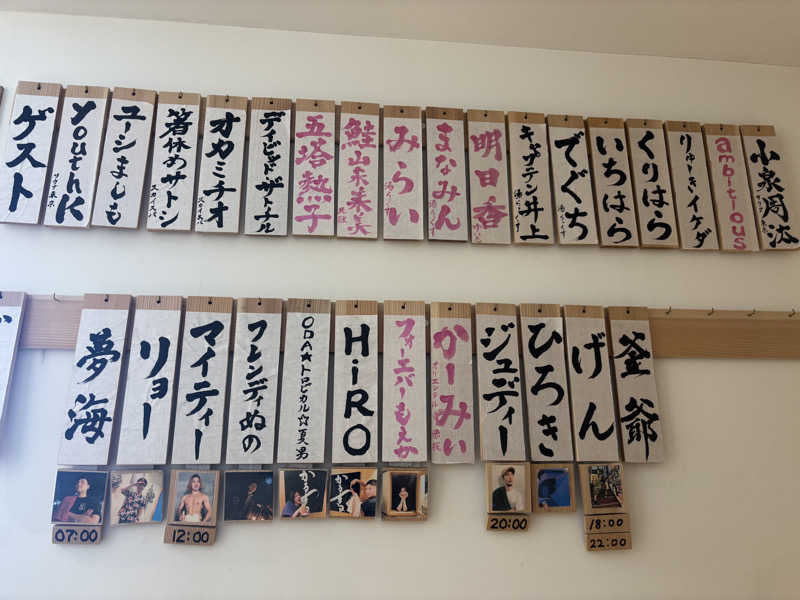 小泉周汰
ambitious
りゅーきイケダ
くりはら
いちはら
でぐち
キャプテン井上
明日香
まなみん
みらい
鮭山未来美
五塔熱子
デイビッド ザ ナル
オカミチオ
スカイスパ
箸休めサトシ
スカイスパ
ユーシましも
youthK
ゲスト
釜爺
げん
ひろき
ジュディー
かーみい
オリエンタル
フォーエバーもえか
HiRO
ODA★トロピカル☆夏男
フレンディぬの
マイティー
リョー
夢海
07:00
12:00
20:00
18:00
22:00